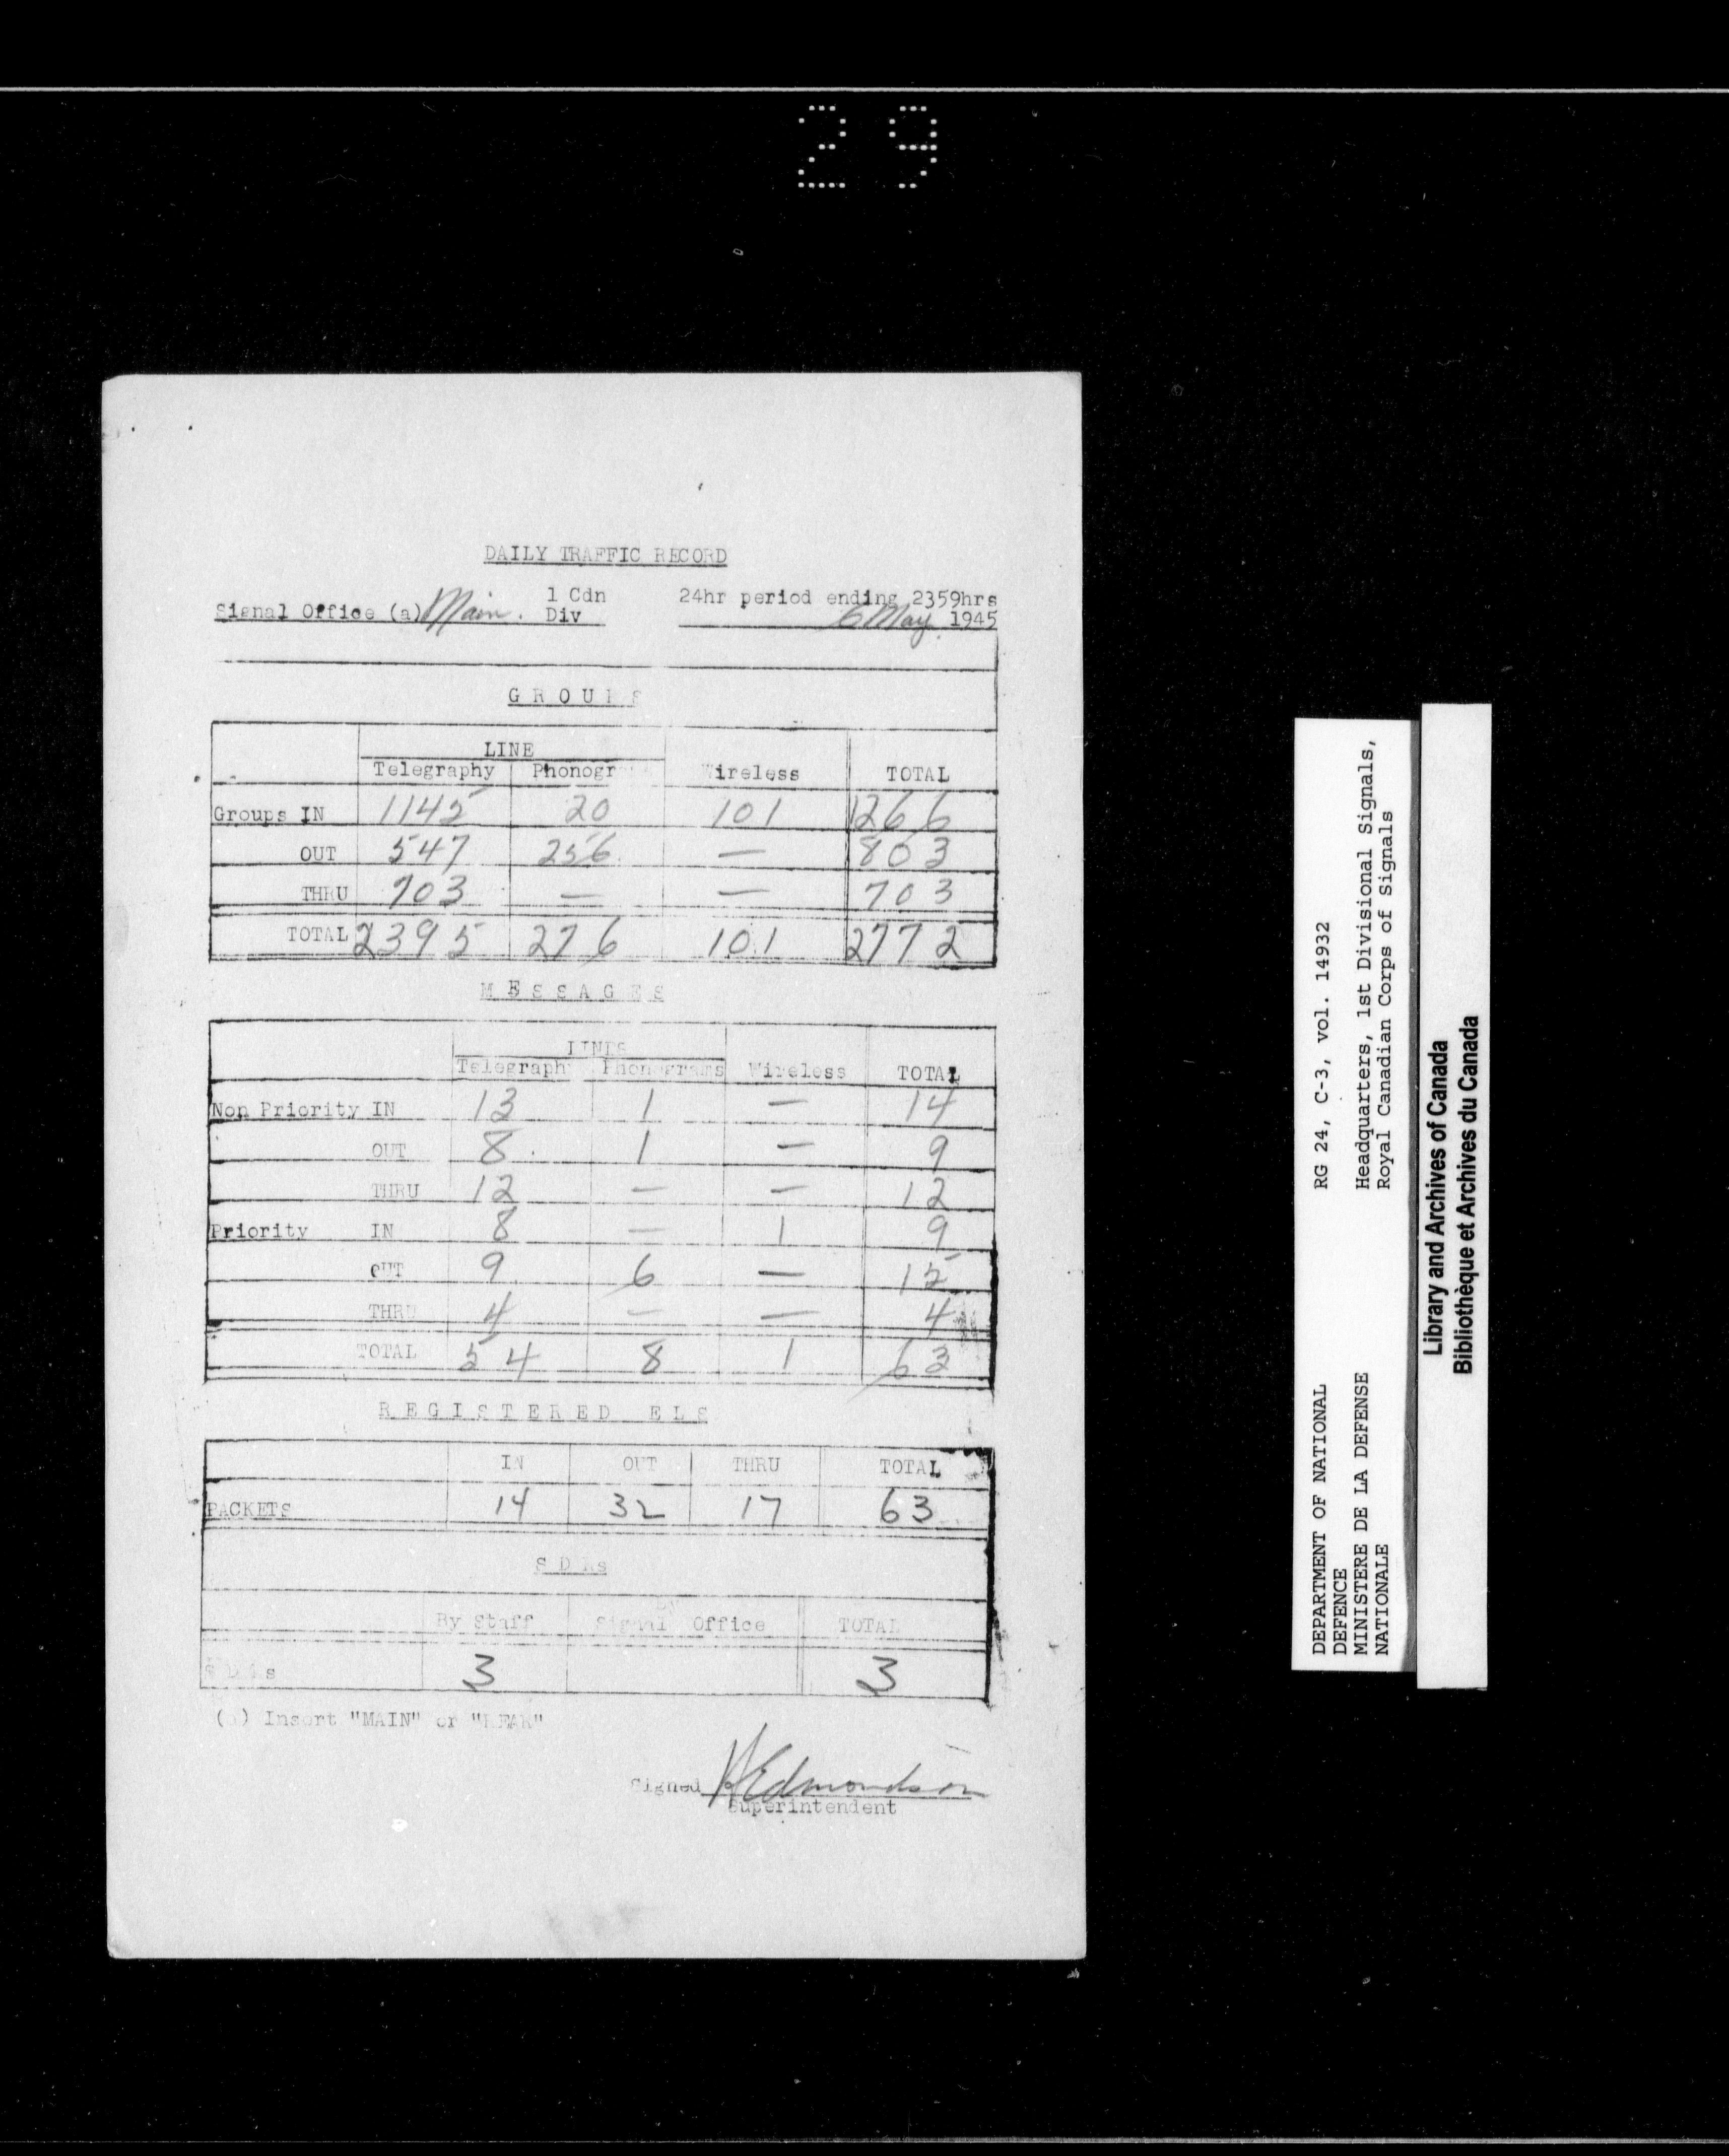 29
DAILY TRAFFIC RECORD
Signal Office (a) Main. 1 Cdn Div 24hr period ending 2359hrs
6 May 1945
GROUPS
LINE
Telegraphy Phonogr Wireless TOTAL
Groups IN 1145 20 101 1266
OUT 547 256 — 803
THRU 703 — — 703
TOTAL 2395 276 101 2772
MESSAGES
LINES
Telegraph Phonograms Wireless TOTAL
Non Priority IN 13 1 — 14
OUT 8 1 — 9
THRU 12 — — 12
Priority IN 8 — 1 9
OUT 9 6 — 15
THRU 4 — — 4
TOTAL 54 8 1 63
REGISTERED ELS
IN OUT THRU TOTAL
PACKETS 14 32 17 63
By Staff Signal Office TOTAL
3 3
(a) Insert "MAIN" or "REAR"
Signed Edmondson
Superintendent
DEPARTMENT OF NATIONAL RG 24, C-3, vol. 14932
DEFENCE
MINISTERE DE LA DEFENSE Headquarters, 1st Divisional Signals,
NATIONALE Royal Canadian Corps of Signals
Library and Archives of Canada
Bibliothèque et Archives du Canada